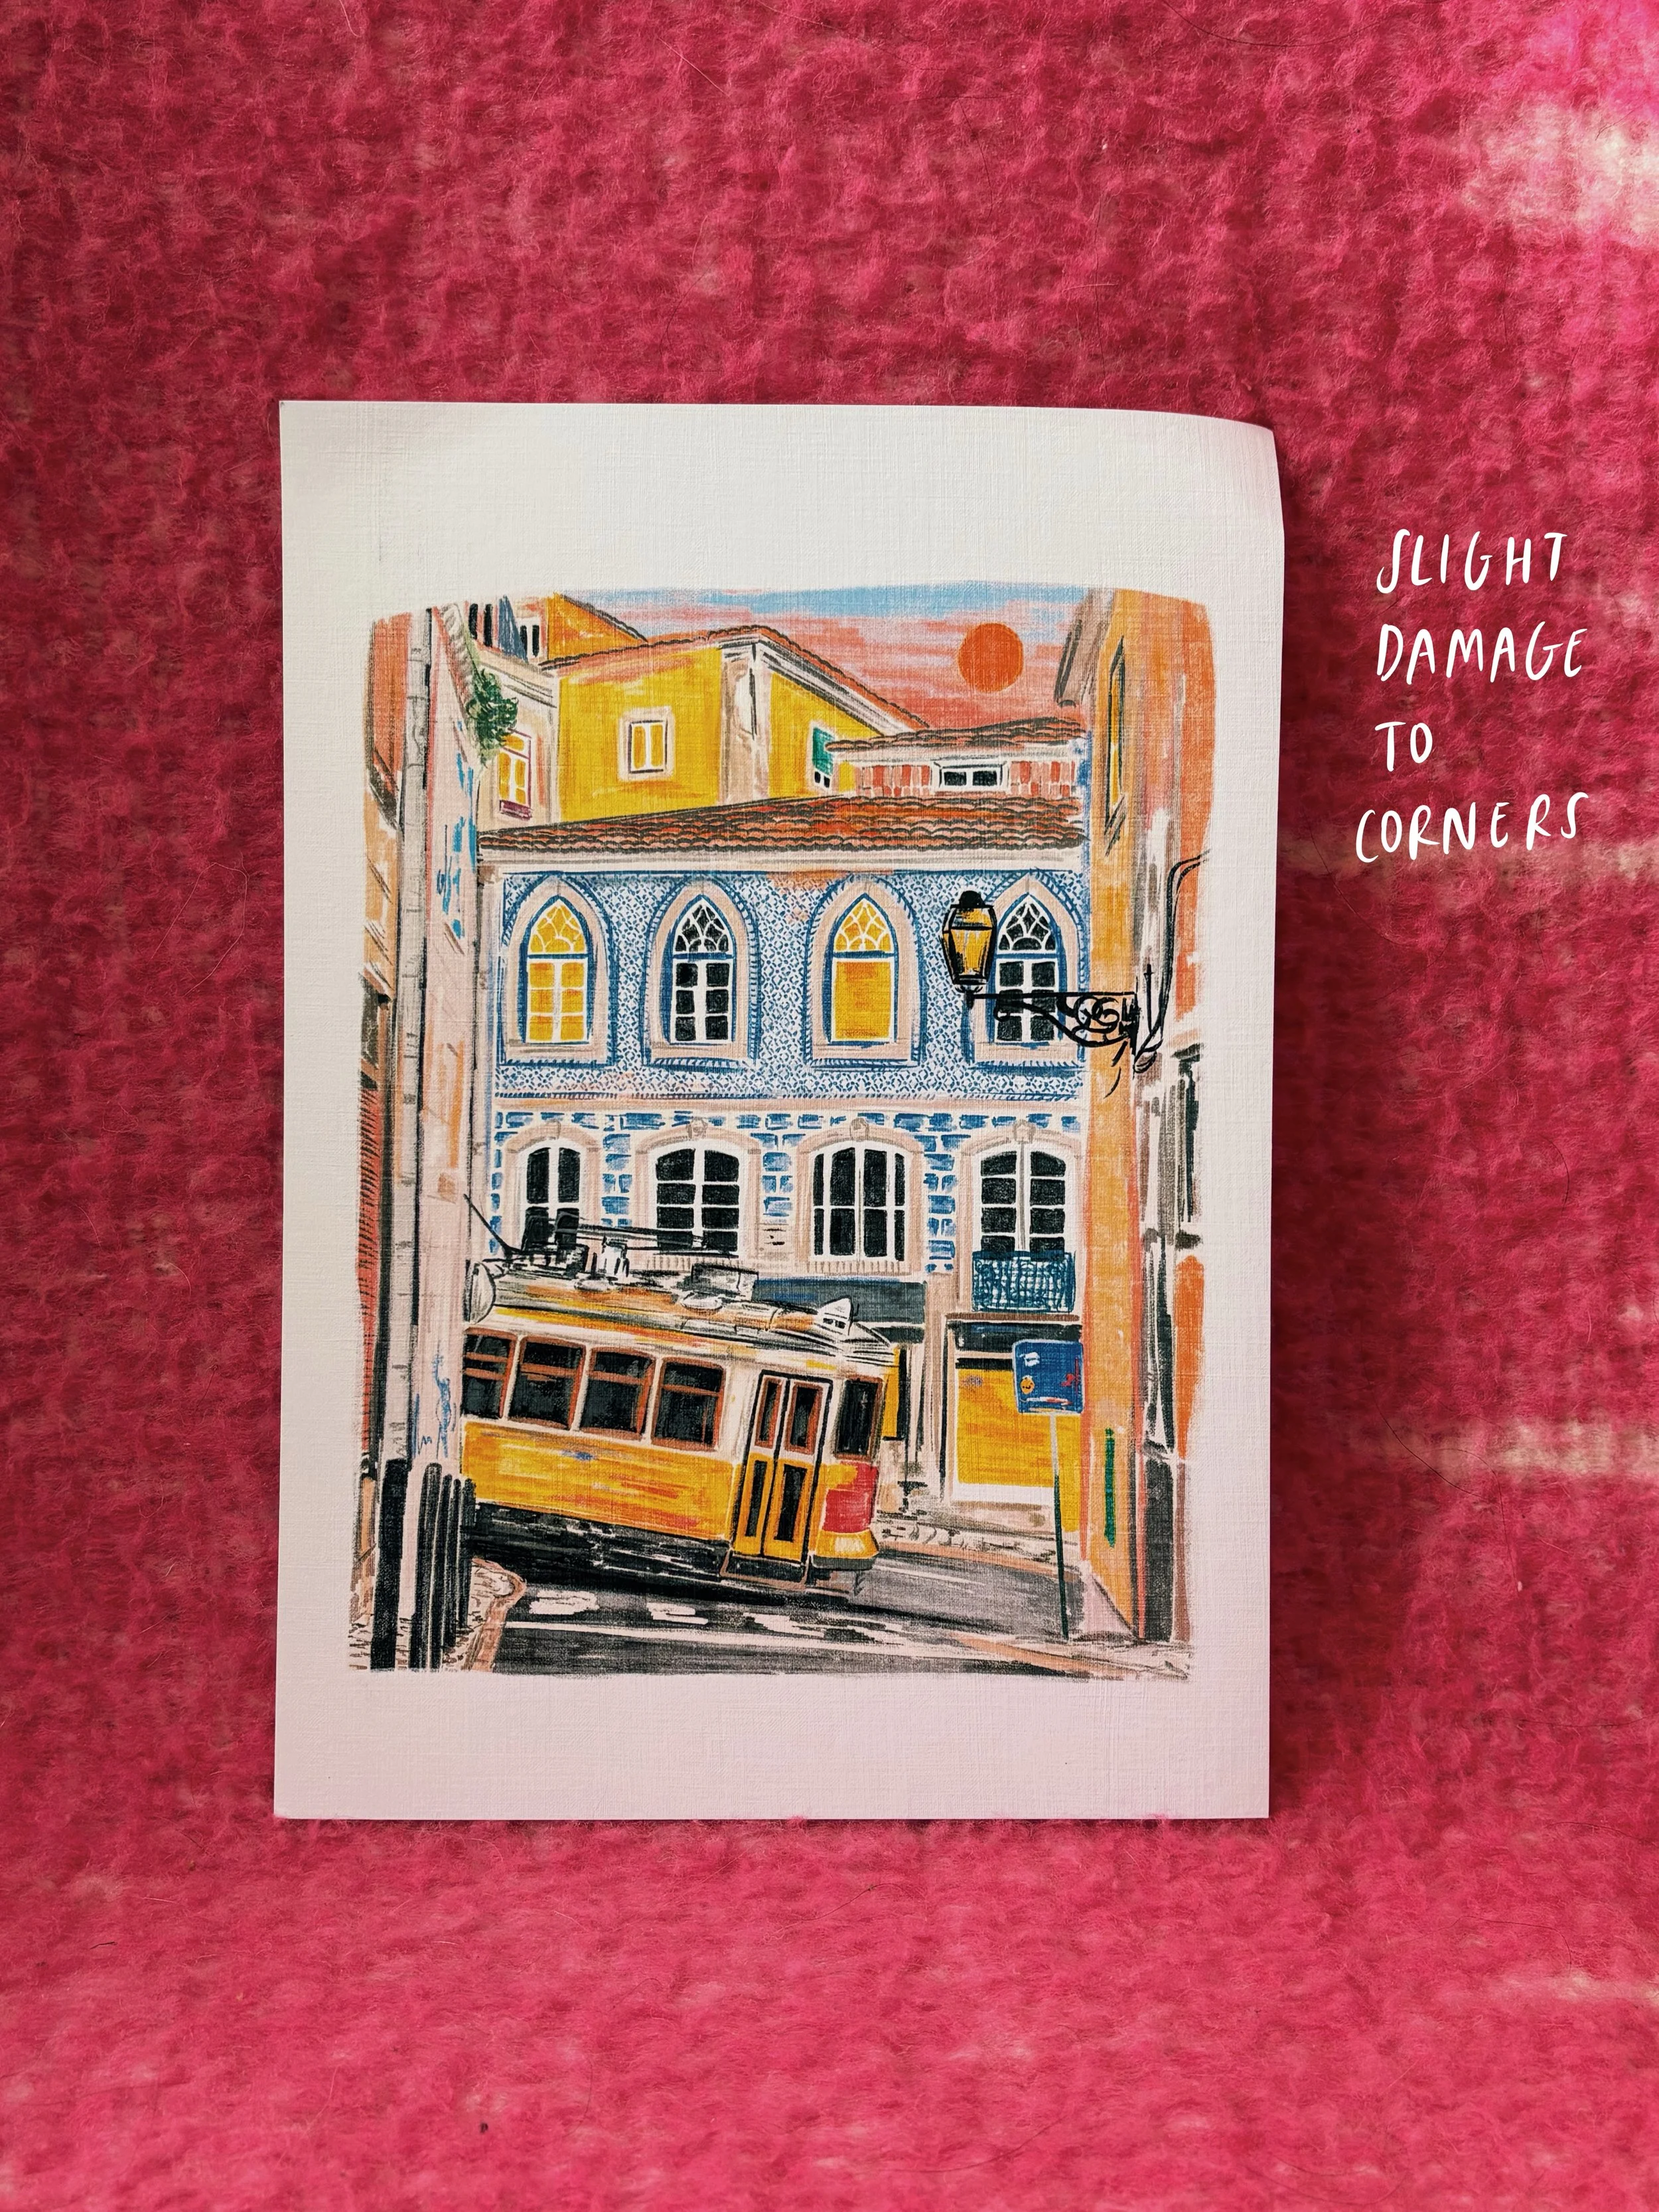 SLIGHT
DAMAGE
TO
CORNERS